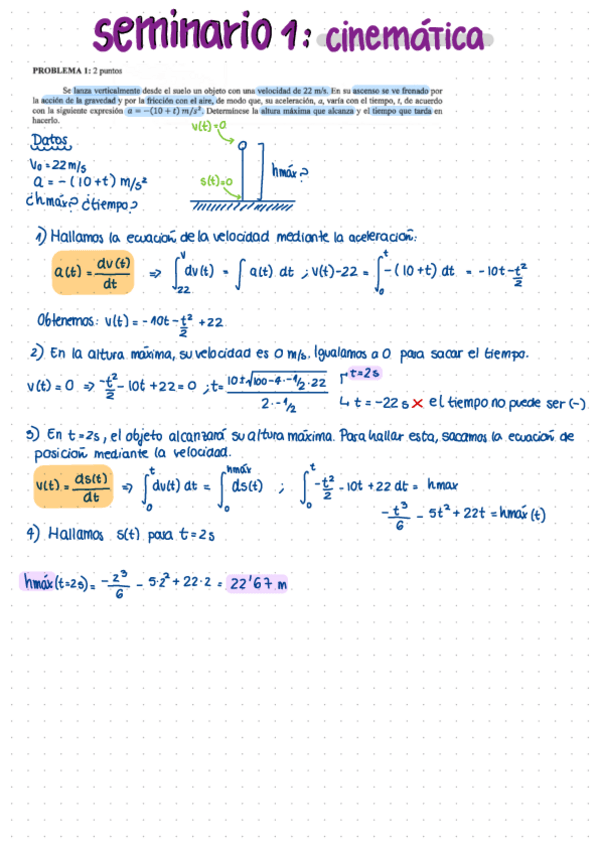 seminario 1: cinemática
PROBLEMA 1: 2 puntos
Se lanza verticalmente desde el suelo un objeto con una velocidad de 22 m/s. En su ascenso se ve frenado por
la acción de la gravedad y por la fricción con el aire, de modo que, su aceleración, a, varía con el tiempo, t, de acuerdo
con la siguiente expresión a = −(10 + t) m/s². Determínese la altura máxima que alcanza y el tiempo que tarda en
hacerlo.
v(t)=0
Datos
V₀ = 22 m/s
a = - (10+t) m/s²
¿hmáx? ¿tiempo?
hmáx?
s(t)=0
1) Hallamos la ecuación de la velocidad mediante la aceleración:
a(t) = dv(t)/dt ⇒ ∫₂₂ᵛ dv(t) = ∫ a(t) dt ; v(t)-22 = ∫₀ᵗ -(10+t) dt = -10t - t²/2
Obtenemos: v(t) = -10t - t²/2 + 22
2) En la altura máxima, su velocidad es 0 m/s. Igualamos a 0 para sacar el tiempo.
v(t) = 0 ⇒ -t²/2 - 10t + 22 = 0 ; t = 10±√(100-4·-1/2·22) / 2·-1/2
t=2s
t = -22 s × el tiempo no puede ser (-)
3) En t=2s, el objeto alcanzará su altura máxima. Para hallar esta, sacamos la ecuación de
posición mediante la velocidad.
v(t) = ds(t)/dt ⇒ ∫₀ᵗ dv(t) dt = ∫₀ʰᵐᵃ́ˣ ds(t) ; ∫₀ᵗ -t²/2 - 10t + 22 dt = hmax
-t³/6 - 5t² + 22t = hmáx (t)
4) Hallamos s(t) para t=2s
hmáx (t=2s) = -2³/6 - 5·2² + 22·2 = 22'67 m